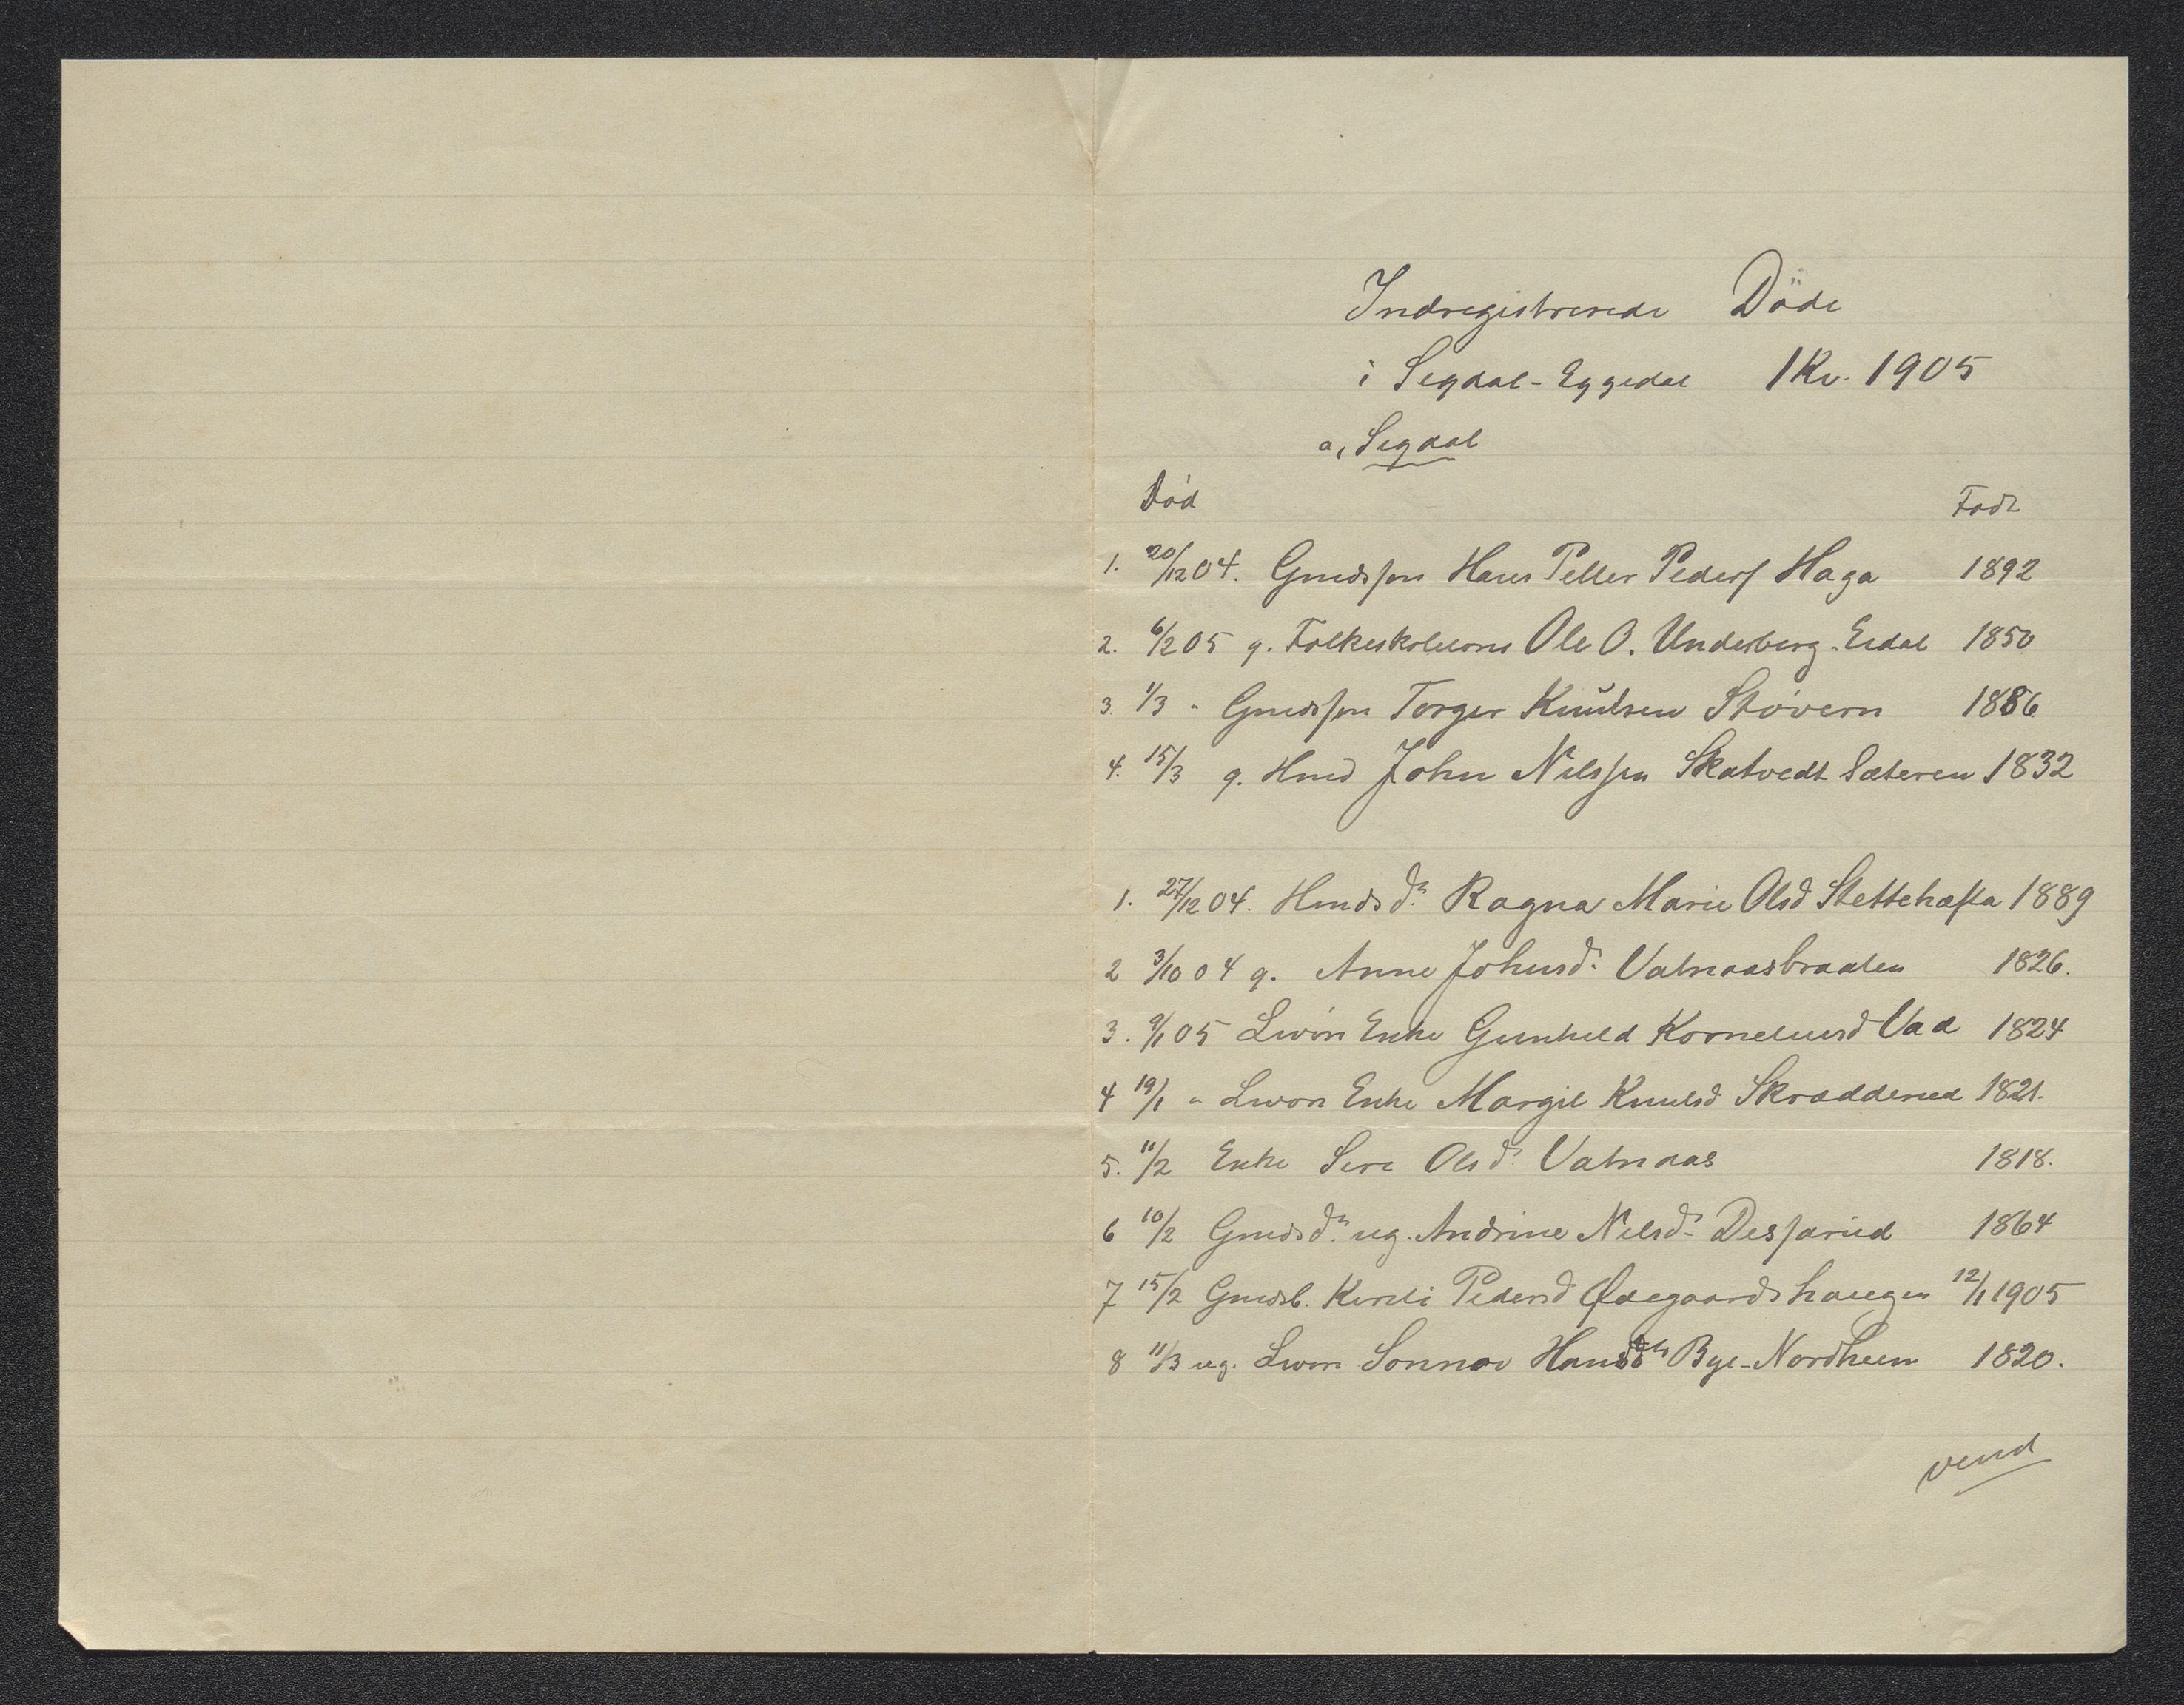 Indregistrerede Döde
i Sigdal - Eggedal 1 Kv. 1905
a, Sigdal
Död Født
1. 20/12 04. Gmdssøn Hans Petter Peders Haga 1892
2. 6/2 05 g. Folkeskolelærer Ole O. Underberg-Eidal 1850
3. 1/3 " Gmdssøn Torger Knudsen Støvern 1886
4. 15/3 g. Hmd John Nilssen Skatvedt Sæteren 1832
1. 27/12 04. Hmdsdr. Ragna Marie Olsd Slettehafta 1889
2 3/10 04 g. Anne Johnsd. Vatnaasbraaten 1826.
3. 9/1 05 Lwön Enke Gunhild Korneliusd Vad 1824
4 19/1 " Lwön Enke Margit Knutsd Skradderud 1821.
5. 11/2 Enke Siri Olsd. Vatnaas 1818.
6 10/2 Gmdsdr. ug. Andrine Nilsd. Desjarud 1864
7 15/2 Gmdsb. Kirsti Pedersd Ødegaardshaugen 12/1 1905
8 11/3 ug. Lwön Sonnov Hansdtr Bye-Nordheim 1820.
vend